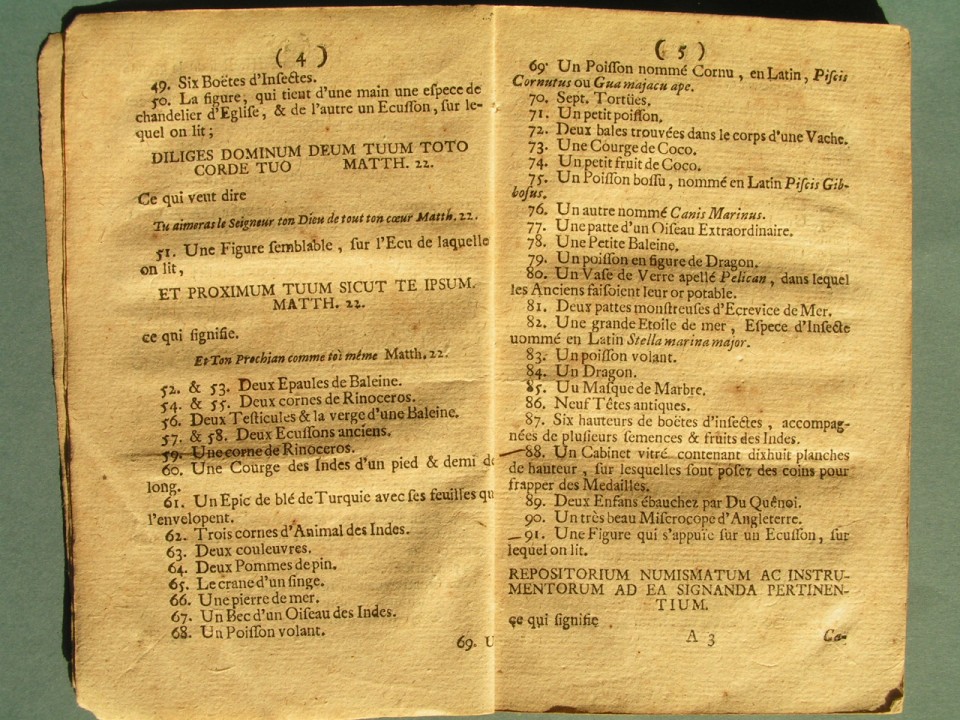 ( 4 )
49. Six Boëtes d'Insectes.
50. La figure, qui tieut d'une main une espece de
chandelier d'Eglise, & de l'autre un Ecusson, sur le-
quel on lit ;
DILIGES DOMINUM DEUM TUUM TOTO
CORDE TUO MATTH. 22.
Ce qui veut dire
Tu aimeras le Seigneur ton Dieu de tout ton cœur Matth. 22.
51. Une Figure semblable, sur l'Ecu de laquelle
on lit,
ET PROXIMUM TUUM SICUT TE IPSUM.
MATTH. 22.
ce qui signifie.
Et Ton Prochian comme toi même Matth. 22.
52. & 53. Deux Epaules de Baleine.
54. & 55. Deux cornes de Rinoceros.
56. Deux Testicules & la verge d'une Baleine.
57. & 58. Deux Ecussons anciens.
59. Une corne de Rinoceros.
60. Une Courge des Indes d'un pied & demi de
long.
61. Un Epic de blé de Turquie avec ses feuilles qu
l'envelopent.
62. Trois cornes d'Animal des Indes.
63. Deux couleuvres.
64. Deux Pommes de pin.
65. Le crane d'un singe.
66. Une pierre de mer.
67. Un Bec d'un Oiseau des Indes.
68. Un Poisson volant.
69. U
( 5 )
69. Un Poisson nommé Cornu, en Latin, Piscis
Cornutus ou Gua majacu ape.
70. Sept. Tortües.
71. Un petit poisson.
72. Deux bales trouvées dans le corps d'une Vache.
73. Une Courge de Coco.
74. Un petit fruit de Coco.
75. Un Poisson bossu, nommé en Latin Piscis Gib-
bosus.
76. Un autre nommé Canis Marinus.
77. Une patte d'un Oiseau Extraordinaire.
78. Une Petite Baleine.
79. Un poisson en figure de Dragon.
80. Un Vase de Verre apellé Pelican, dans lequel
les Anciens faisoient leur or potable.
81. Deux pattes monstreuses d'Ecrevice de Mer.
82. Une grande Etoile de mer, Espece d'Insecte
uommé en Latin Stella marina major.
83. Un poisson volant.
84. Un Dragon.
85. Uu Masque de Marbre.
86. Neuf Têtes antiques.
87. Six hauteurs de boëtes d'insectes, accompag-
nées de plusieurs semences & fruits des Indes.
88. Un Cabinet vitré contenant dixhuit planches
de hauteur, sur lesquelles sont pósez des coins pour
frapper des Medailles.
89. Deux Enfans ébauchez par Du Quênoi.
90. Un très beau Miscrocope d'Angleterre.
91. Une Figure qui s'appuie sur un Ecusson, sur
lequel on lit.
REPOSITORIUM NUMISMATUM AC INSTRU-
MENTORUM AD EA SIGNANDA PERTINEN-
TIUM.
ce qui signifie
A 3 Ca-